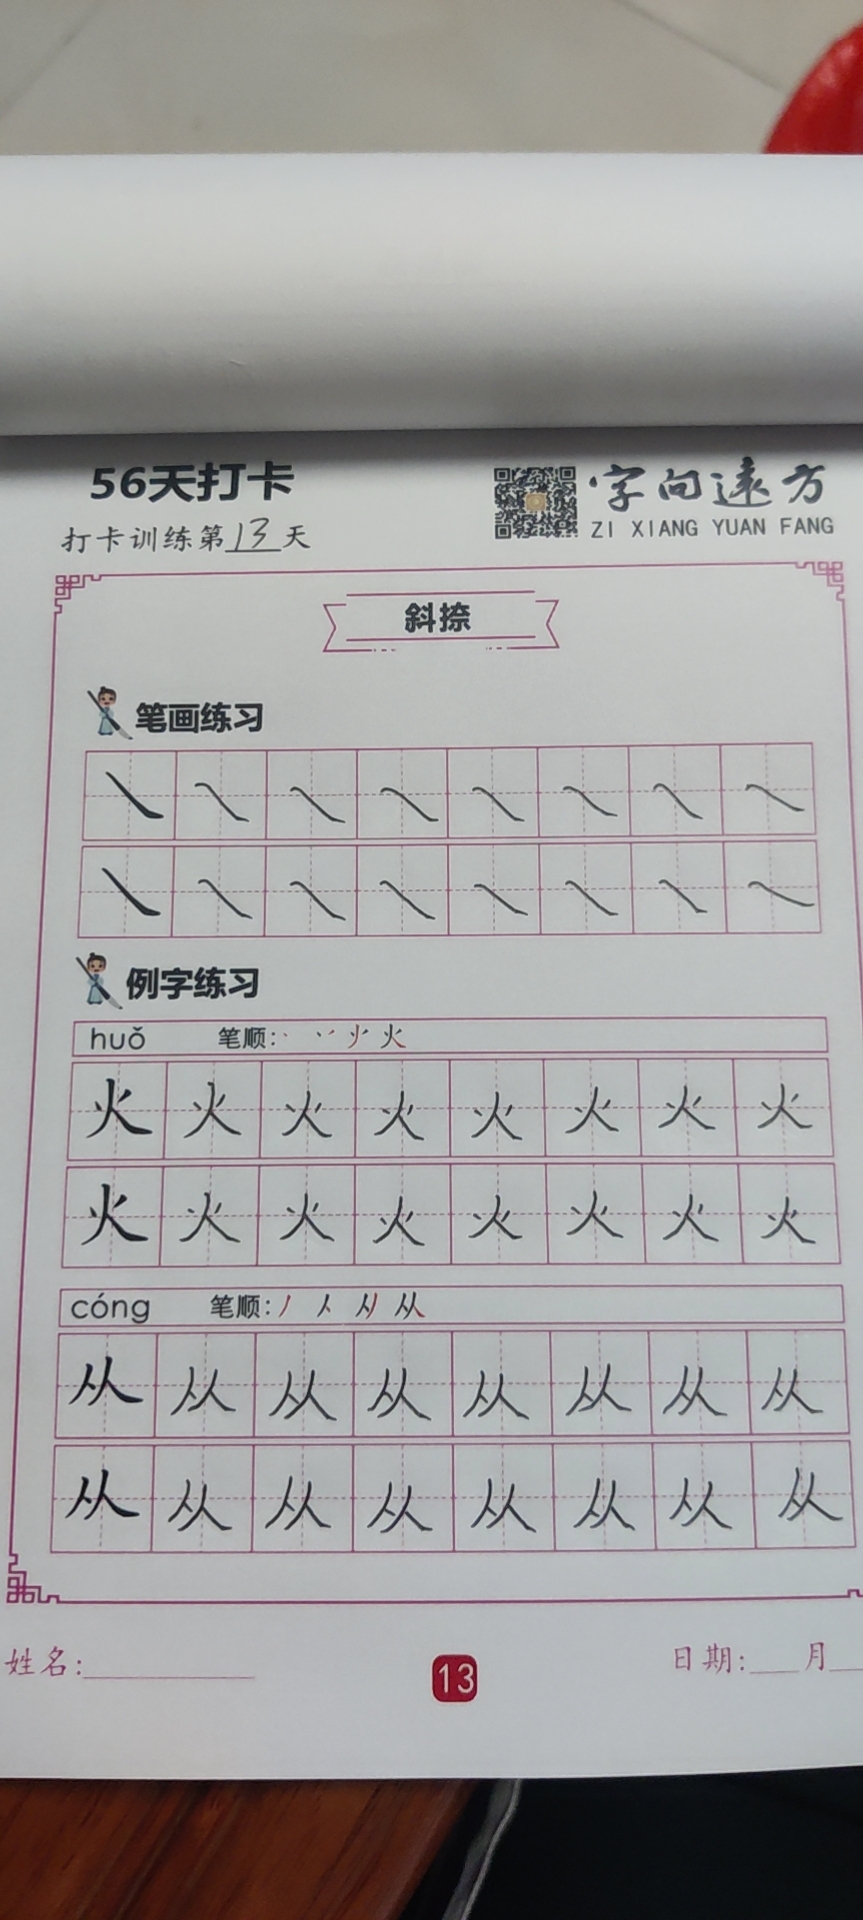 56天打卡
字向远方
打卡训练第13天
ZI XIANG YUAN FANG
斜捺
笔画练习
㇏ ㇏ ㇏ ㇏ ㇏ ㇏ ㇏ ㇏
㇏ ㇏ ㇏ ㇏ ㇏ ㇏ ㇏ ㇏
例字练习
huǒ 笔顺: 火
火 火 火 火 火 火 火 火
火 火 火 火 火 火 火 火
cóng 笔顺: 从
从 从 从 从 从 从 从 从
从 从 从 从 从 从 从 从
姓名:
13
日期: 月